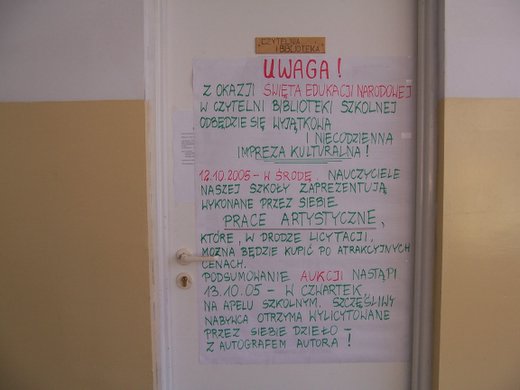 CZYTELNIA
I BIBLIOTEKA
UWAGA!
Z OKAZJI ŚWIĘTA EDUKACJI NARODOWEJ
W CZYTELNI BIBLIOTEKI SZKOLNEJ
ODBĘDZIE SIĘ WYJĄTKOWA
I NIECODZIENNA
IMPREZA KULTURALNA!
12.10.2005 - W ŚRODĘ NAUCZYCIELE
NASZEJ SZKOŁY ZAPREZENTUJĄ
WYKONANE PRZEZ SIEBIE
PRACE ARTYSTYCZNE,
KTÓRE, W DRODZE LICYTACJI,
MOŻNA BĘDZIE KUPIĆ PO ATRAKCYJNYCH
CENACH.
PODSUMOWANIE AUKCJI NASTĄPI
13.10.05 - W CZWARTEK
NA APELU SZKOLNYM. SZCZĘŚLIWY
NABYWCA OTRZYMA WYLICYTOWANE
PRZEZ SIEBIE DZIEŁO -
Z AUTOGRAFEM AUTORA!